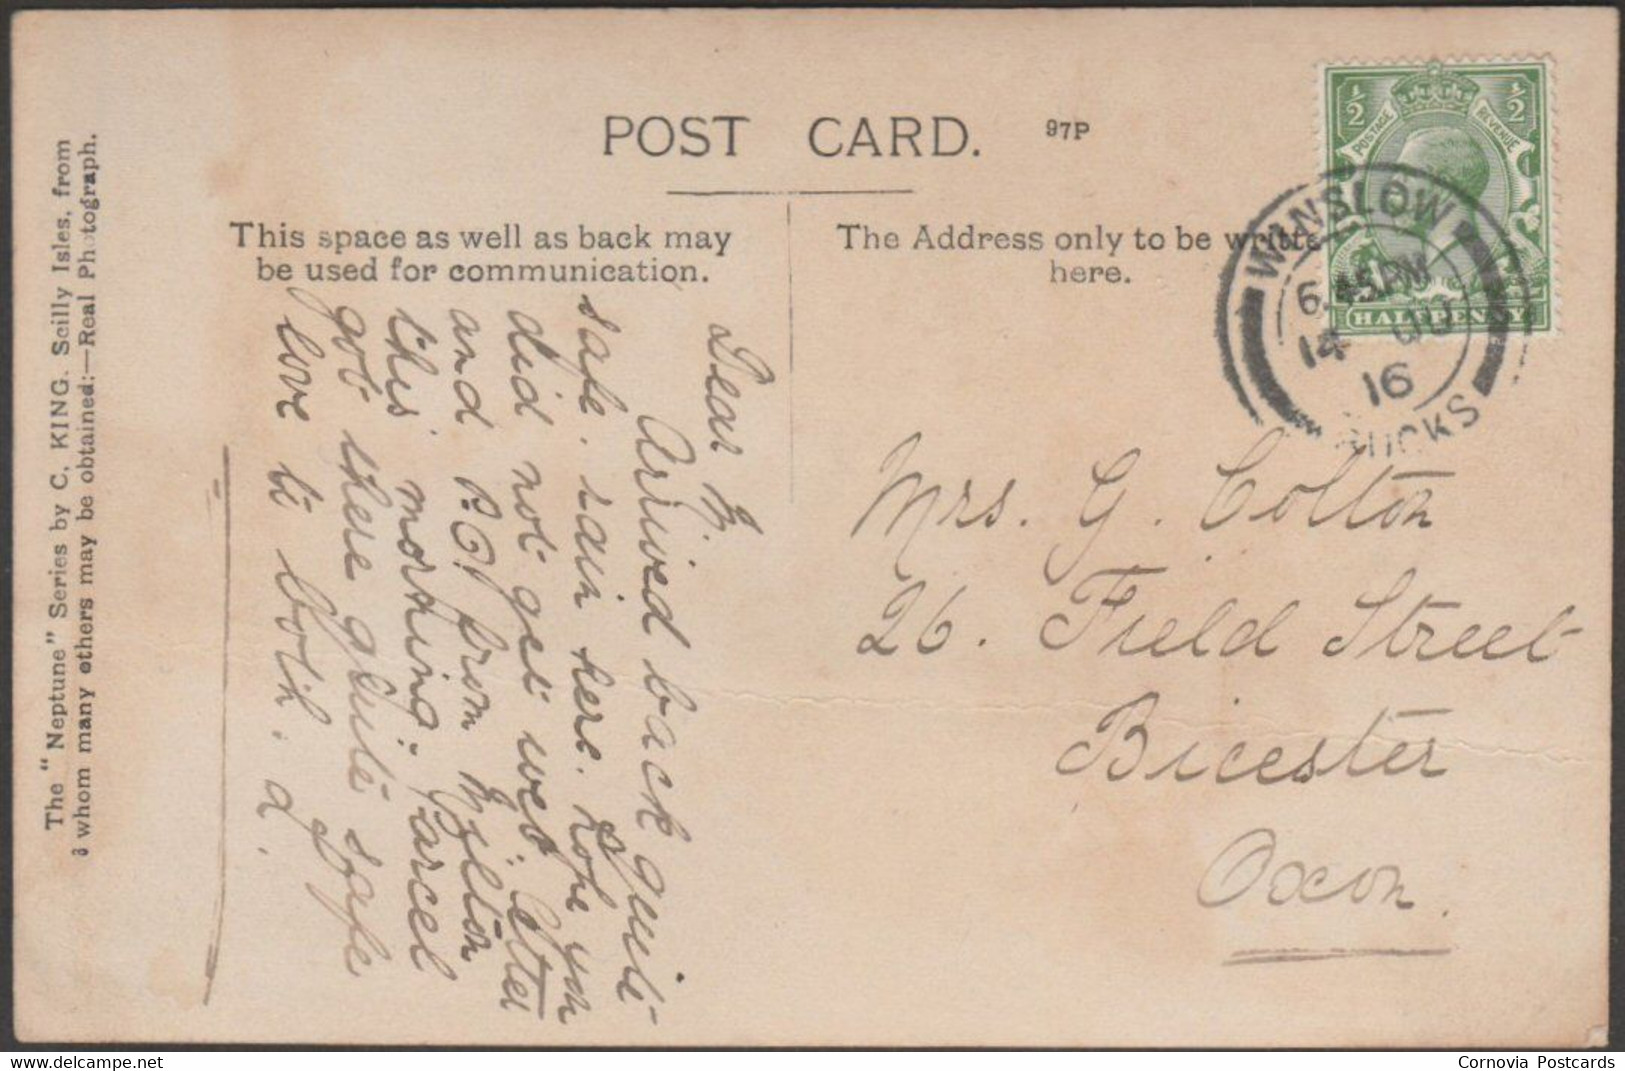 The "Neptune" Series by C. KING. Scilly Isles, from
whom many others may be obtained:—Real Photograph.
POST CARD.
97P
This space as well as back may
be used for communication.
The Address only to be writte
here.
½ ½
POSTAGE REVENUE
HALFPENNY
WINSLOW
6.45PM
14
16
BUCKS
Dear M.
Arrived back quite
safe. rain here. hope you
did not get wet. Letter
and P.O. from
this morning. Parcel
got there quite safe
love to both. d.
Mrs. G. Colton
26. Field Street
Bicester
Oxon.
Cornovia Postcards